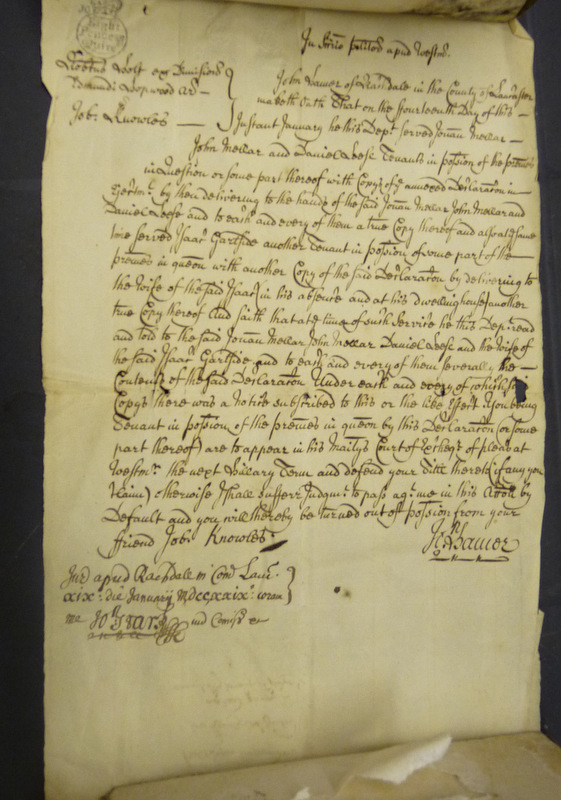 In Sccio placitor apud Westmr
John Hamer of Rachdale in the County of Lancaster
maketh Oath That on the fourteenth Day of this
Edmundi Hopwood Ar
Instant January he this Dept served Jonan Mellar
Job: Knowles
John Mellar and Daniel Leese Tenants in possion of the premes
in Question or some part thereof with Copys of ye annexed Declaracon in
Ejectmt by then delivering to the hands of the said Jonan Mellar John Mellar and
Daniel Leese and to each and every of them a true Copy thereof and also att ye same
time served Isaac Gartside another Tenant in possion of some part of the
premes in queon with another Copy of the said Declaracon by delivering to
the Wife of the said Isaac (in his absence and at his dwellinghouse) another
true Copy thereof And saith that att ye time of such Service he this Dept read
and told to the said Jonan Mellar John Mellar Daniel Leese and the Wife of
the said Isaac Gartside and to each and every of them severally the
Contents of the said Declaracon Under each and every of which said
Copys there was a notice subscribed to this or the like effect. You being
Tenant in possion of the premes in queon by this Declaracon (or some
part thereof) are to appear in his Matys Court of Excheqr of pleas at
Westmr the next Hillary Term and defend your title thereto (if any you
Claim) otherwise I shall suffer Judgmt to pass agt me in this Accon by
Default and you will thereby be turned out of possion from your
ffriend Job: Knowles.
Jno Hamer
Jur apud Rachdale in Com Lanc
xixo die January MDccxxixo coram
me